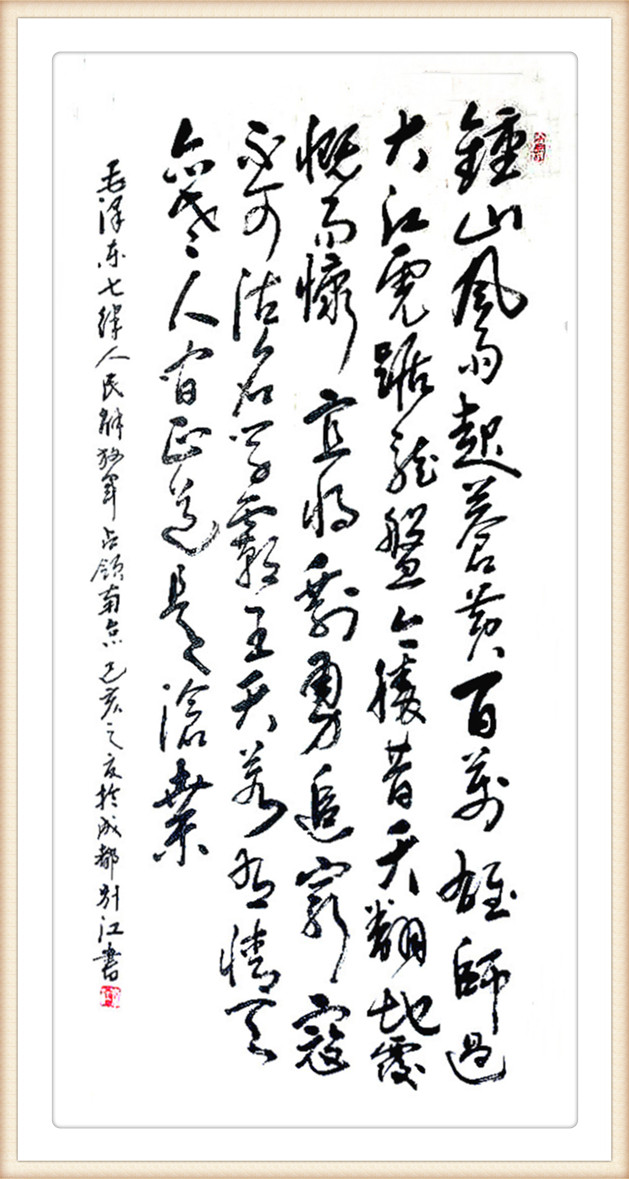 鍾山風雨起蒼黃百萬雄師過
大江虎踞龍盤今勝昔天翻地覆
慨而慷宜將剩勇追窮寇
不可沽名學霸王天若有情天
亦老人间正道是滄桑
毛泽东七律人民解放军占领南京己亥之夏於成都江書